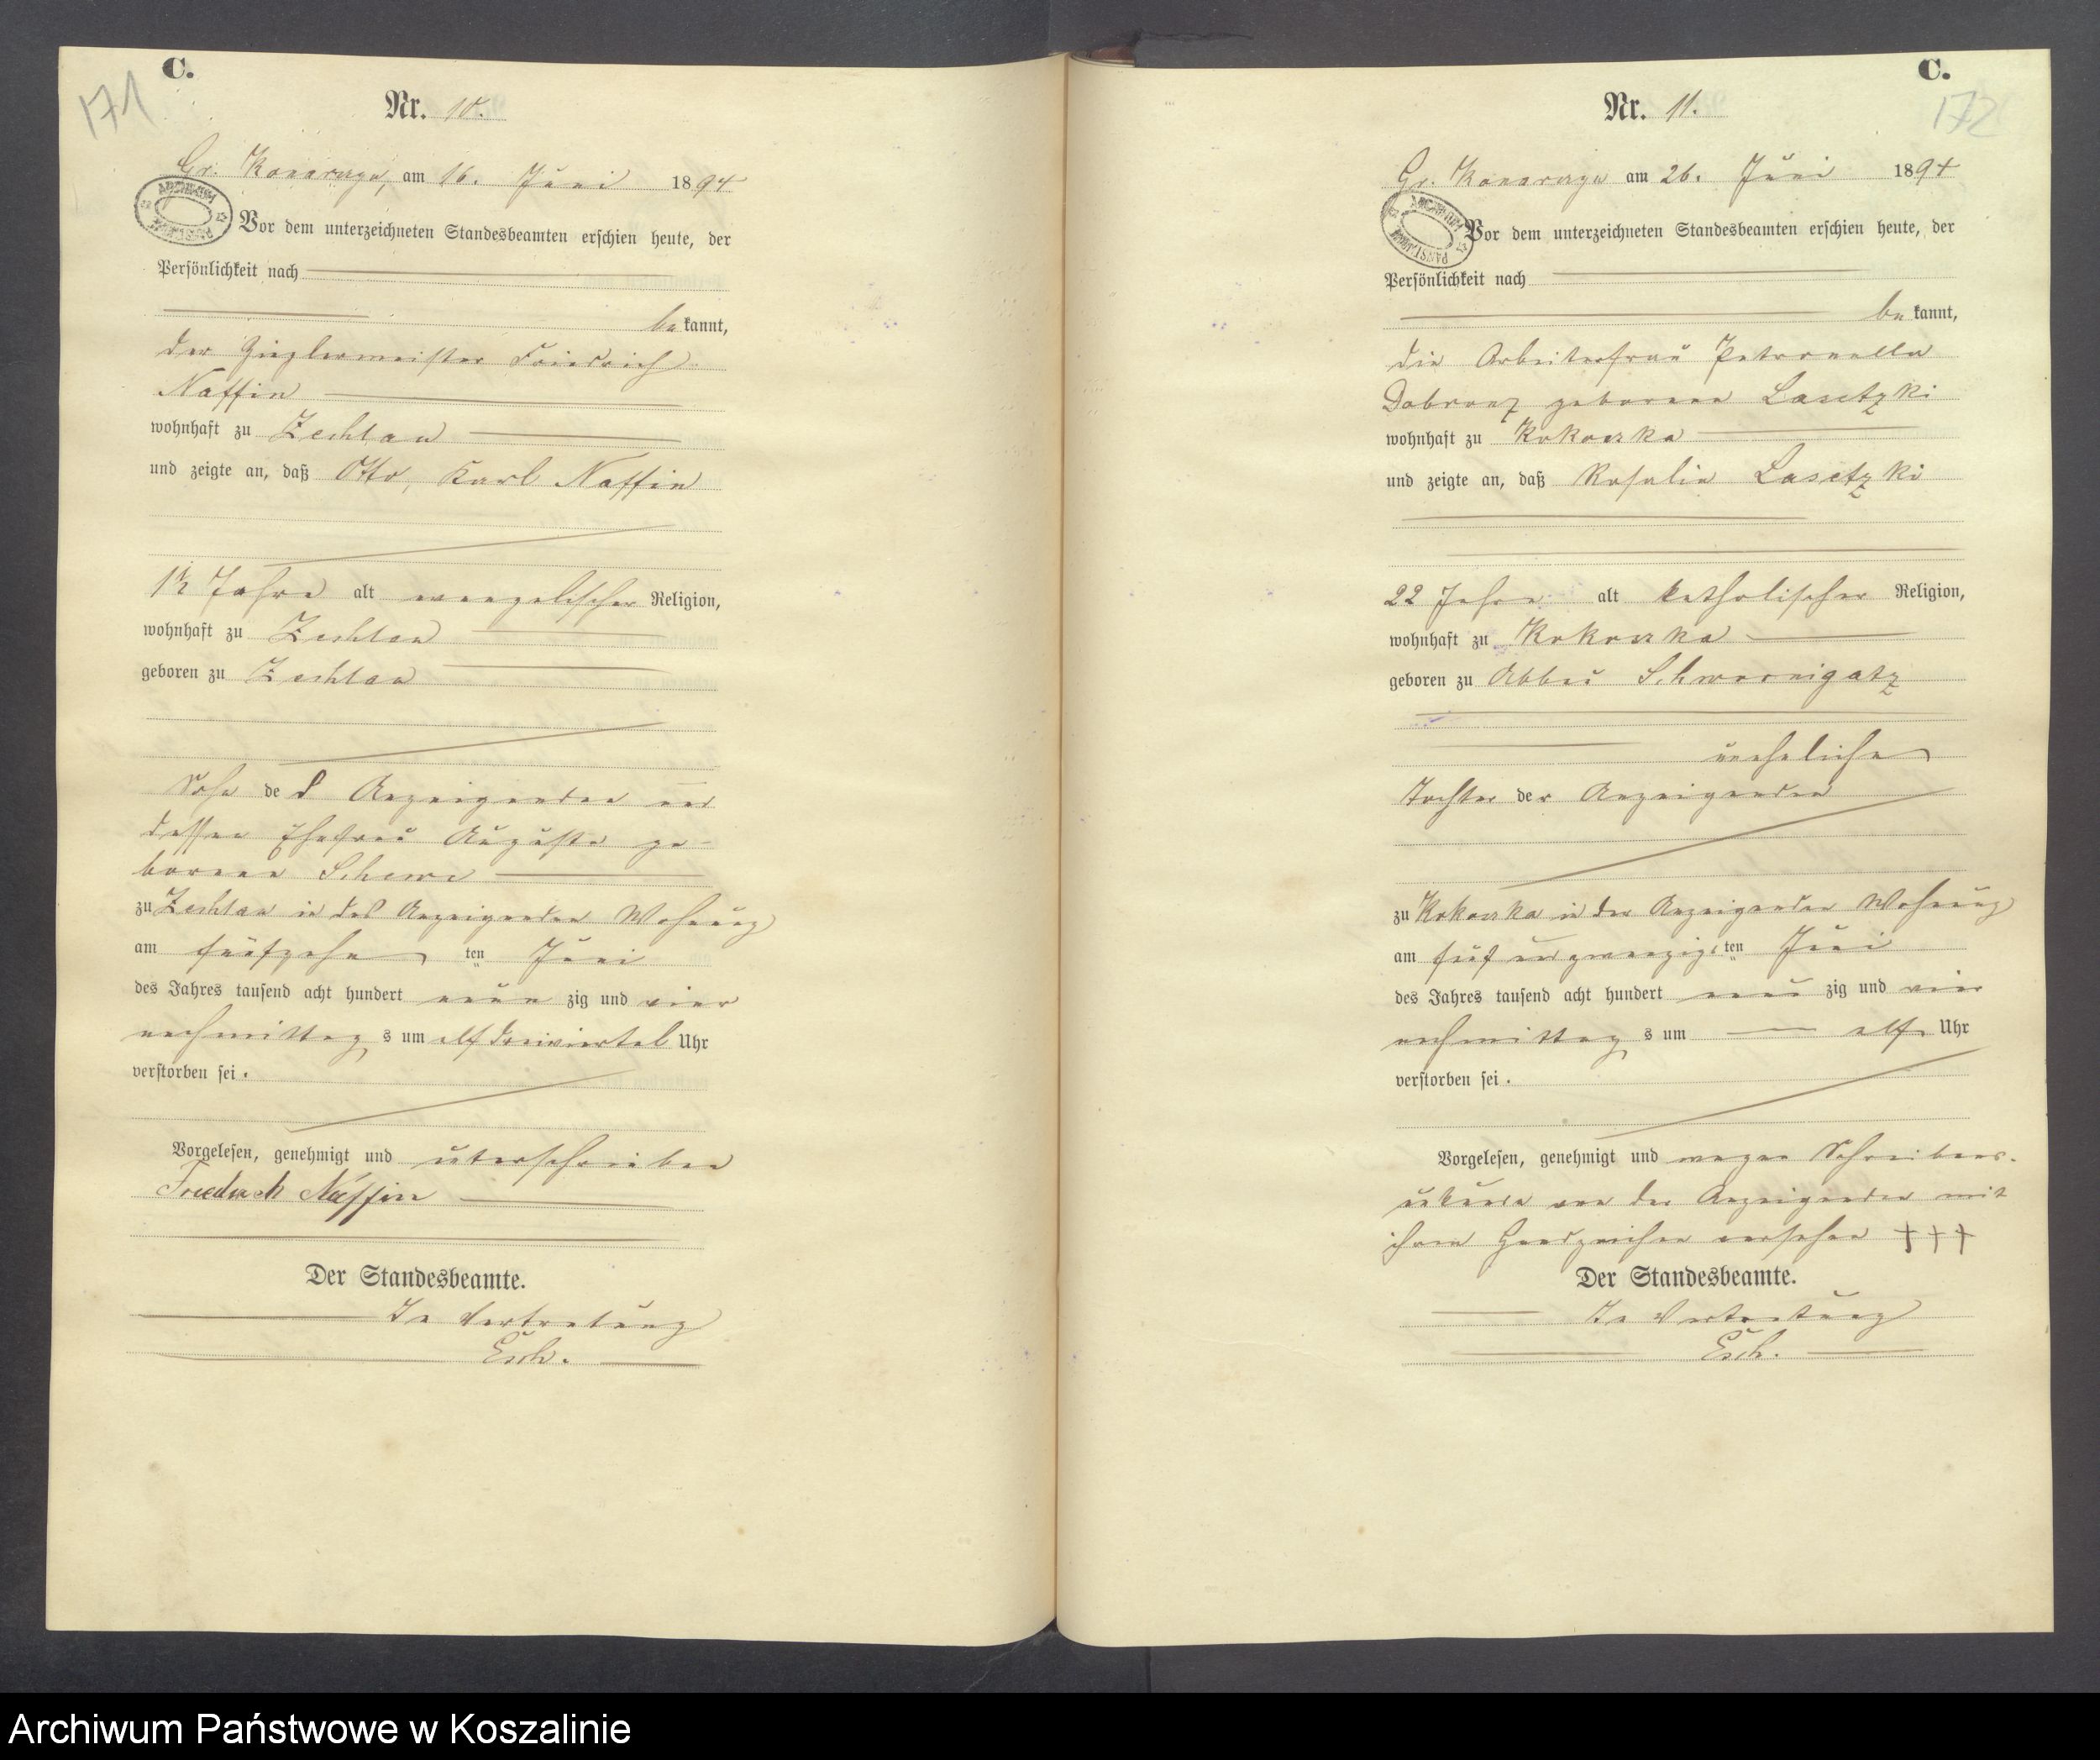 C.
171
Nr. 10.
Gr. Konarczyn, am 16. Juni 1894
ARCHIWUM
Vor dem unterzeichneten Standesbeamten erschien heute, der
Persönlichkeit nach
be kannt,
der Zieglermeister Friedrich
Naffin
wohnhaft zu Zechlau
und zeigte an, daß Otto, Karl Naffin
Jahre alt evangelischer Religion,
wohnhaft zu Zechlau
geboren zu Zechlau
Sohn des Anzeigenden und
dessen Ehefrau Auguste ge-
borenen Schewe
zu Zechlau in des Anzeigenden Wohnung
am fünfzehn ten Juni
des Jahres tausend acht hundert neun zig und vier
nachmittag s um elf dreiviertel Uhr
verstorben sei.
Vorgelesen, genehmigt und unterschrieben
Friedrich Naffin
Der Standesbeamte.
In Vertretung
Esch.
C.
172
Nr. 11.
Gr. Konarczyn am 26. Juni 1894
ARCHIWUM
Vor dem unterzeichneten Standesbeamten erschien heute, der
Persönlichkeit nach
be kannt,
die Arbeiterfrau Petronella
geborene Lasetzki
wohnhaft zu Kokoszka
und zeigte an, daß Rosalie Lasetzki
22 Jahre alt katholischer Religion,
wohnhaft zu Kokoszka
geboren zu Abbau Schwornigatz
uneheliche
Tochter der Anzeigenden
zu Kokoszka in der Anzeigenden Wohnung
am fünf und zwanzigs ten Juni
des Jahres tausend acht hundert neun zig und vier
nachmittag s um elf Uhr
verstorben sei.
Vorgelesen, genehmigt und wegen Schreibens-
unkunde von der Anzeigenden mit
ihrem Handzeichen versehen +++
Der Standesbeamte.
In Vertretung
Esch.
Archiwum Państwowe w Koszalinie